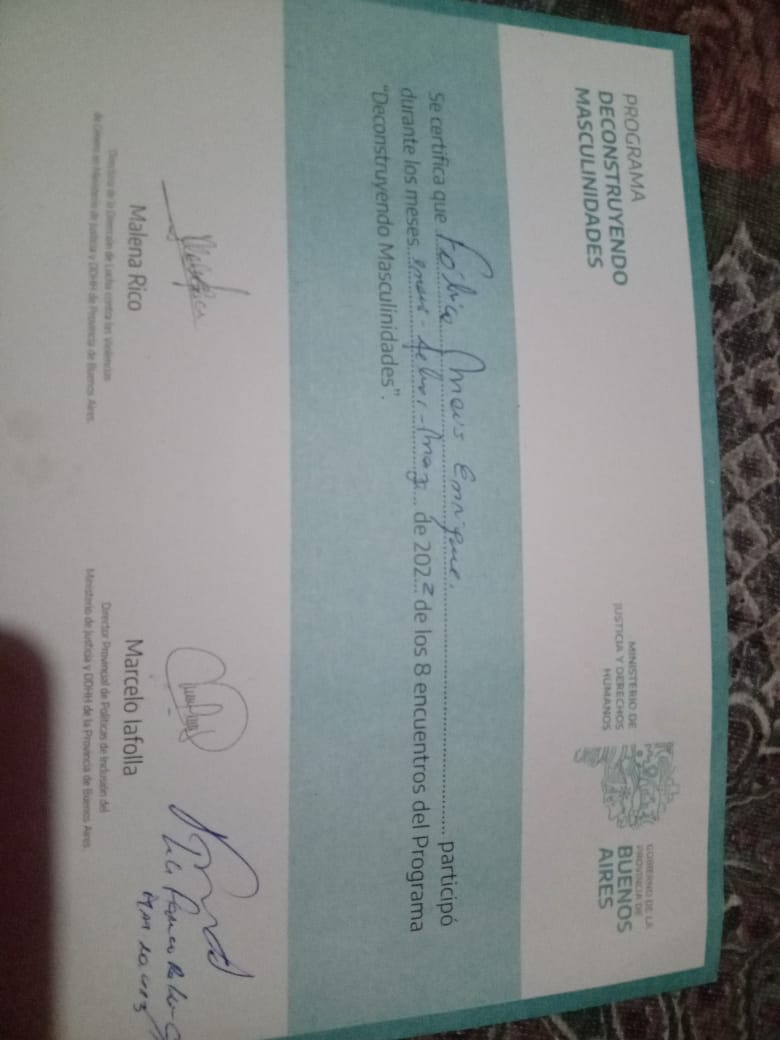 PROGRAMA
DECONSTRUYENDO
MASCULINIDADES
MINISTERIO DE
JUSTICIA Y DERECHOS
HUMANOS
GOBIERNO DE LA
PROVINCIA DE
BUENOS
AIRES
Se certifica que Enrique. participó
durante los meses enero - febr. - Marz de 2022 de los 8 encuentros del Programa
“Deconstruyendo Masculinidades”.
Malena Rico
Marcelo Iafolla
Directora de la Dirección de Lucha contra las Violencias
de Género en Ministerio de Justicia y DDHH de Provincia de Buenos Aires.
Director Provincial de Políticas de Inclusión del
Ministerio de Justicia y DDHH de la Provincia de Buenos Aires.